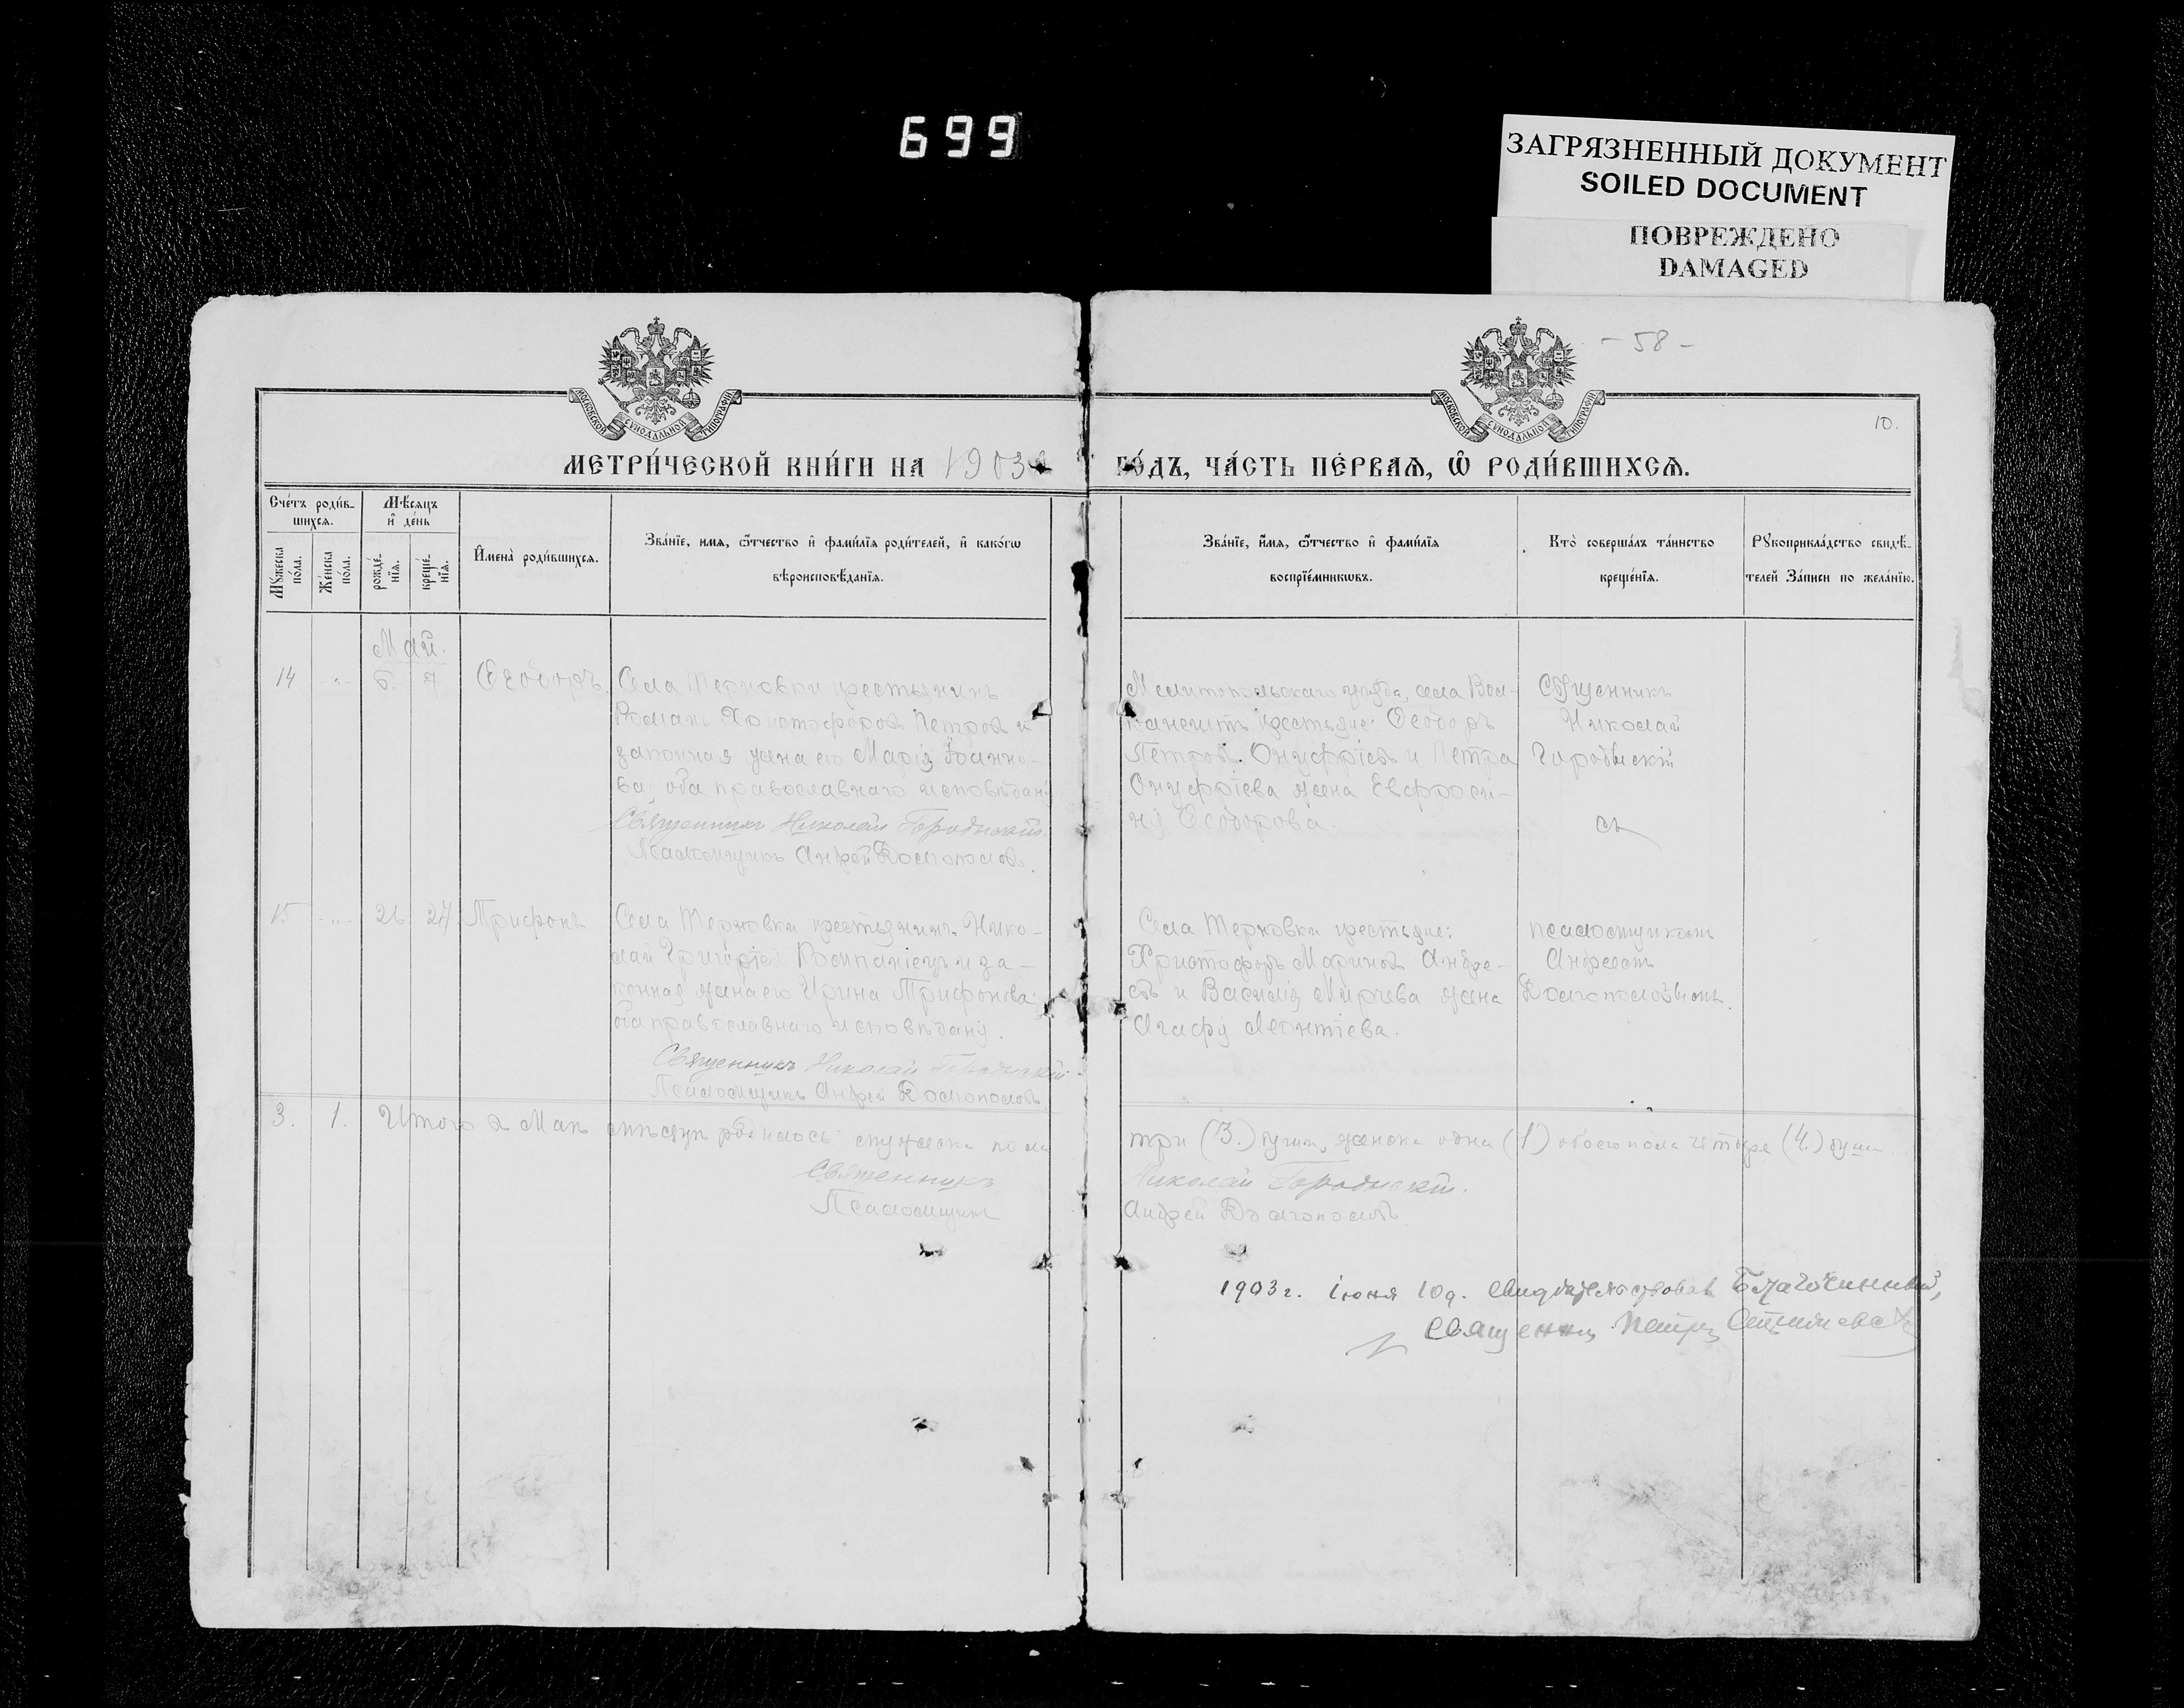 699
ЗАГРЯЗНЕННЫЙ ДОКУМЕНТ
SOILED DOCUMENT
ПОВРЕЖДЕНО
DAMAGED
- 58 -
10.
МОСКОВСКОЙ СѴНОДАЛЬНОЙ ТИПОГРАФІИ
МОСКОВСКОЙ СѴНОДАЛЬНОЙ ТИПОГРАФІИ
МЕТРИ́ЧЕСКОЙ КНИ́ГИ НА 1903
ГО́ДЪ, ЧА́СТЬ ПЕ́РВАѦ, Ѡ҆ РОДИ́ВШИХСѦ.
Сче́тъ роди́в-
шихсѧ.
Мѣсѧцъ
и҆ де́нь
Мꙋ́жеска по́ла.
Же́нска по́ла.
рожде́-нїѧ.
креще́-нїѧ.
И҆мена̀ роди́вшихсѧ.
Зва́нїе, имѧ, ѻ҆́тчество и҆ фами́лїѧ роди́телей, и҆ како́гѡ
вѣроисповѣ́данїѧ.
Зва́нїе, и҆́мѧ, ѻ҆́тчество и҆ фами́лїѧ
воспрїе́мникѡвъ.
Кто̀ соверша́лъ та́инство
креще́нїѧ.
Рꙋкоприкла́дство свидѣ́-
телей За́писи по жела́нїю.
Май.
14 " 6. 7 Ѳеодоръ.
Села Терновки крестьянинъ
Романъ Христофоровъ Петровъ и
законная жена его Марія Іоанно-
ва, оба православнаго исповѣдані
Священникъ Николай Городискій.
Псаломщикъ Андрей Долгополовъ.
Мелитопольскаго уѣзда, села Вол-
канешть крестьяне: Ѳеодоръ
Петровъ Онуфріевъ и Петра
Онуфріева жена Евфроси-
нія Ѳеодорова.
Священникъ
Николай
Городискій
15 " 26 27 Трифонъ
Села Терновки крестьянинъ Нико-
лай Григоріевъ и за-
конная жена его Ирина Трифонова
оба православнаго исповѣданія.
Священникъ Николай Городискій
Псаломщикъ Андрей Долгополовъ.
Села Терновки крестьяне:
Христофоръ Мариновъ Андре-
евъ и Василія Мирчева жена
Агафія Леонтіева.
псаломщикомъ
Андреемъ
Долгополовымъ.
3. 1. Итого въ Маѣ мѣсяцѣ родилось: мужеска пола
три (3.) души, женска одна (1) обоего пола четыре (4.) души
Священникъ
Николай Городискій.
Псаломщикъ
Андрей Долгополовъ
1903 г. Іюня 10 д. свидѣтельствовалъ Благочинный,
Священникъ Петръ